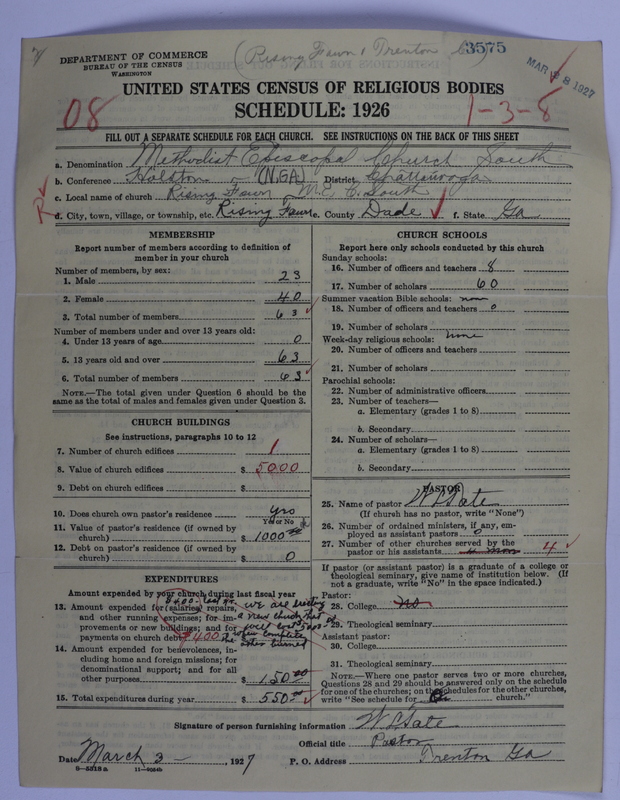 (Rising Fawn & Trenton
3575
MAR 28 1927
DEPARTMENT OF COMMERCE
BUREAU OF THE CENSUS
WASHINGTON
UNITED STATES CENSUS OF RELIGIOUS BODIES
SCHEDULE: 1926
08
1-3-8
FILL OUT A SEPARATE SCHEDULE FOR EACH CHURCH. SEE INSTRUCTIONS ON THE BACK OF THIS SHEET
a. Denomination Methodist Episcopal Church South
b. Conference Holston (N.GA) District Chattanooga
c. Local name of church Rising Fawn M.E.C. South
d. City, town, village, or township, etc. Rising Fawn e. County Dade f. State Ga.
MEMBERSHIP
Report number of members according to definition of
member in your church
Number of members, by sex:
1. Male 23
2. Female 40
3. Total number of members 63
Number of members under and over 13 years old:
4. Under 13 years of age 0
5. 13 years old and over 63
6. Total number of members 63
NOTE.—The total given under Question 6 should be
same as the total of males and females given under Question 3.
CHURCH BUILDINGS
See instructions, paragraphs 10 to 12
7. Number of church edifices 1
8. Value of church edifices $ 5000
9. Debt on church edifices $
10. Does church own pastor's residence yes
Yes or No
11. Value of pastor's residence (if owned by
church) $ 1000.00
12. Debt on pastor's residence (if owned by
church) $ 0
EXPENDITURES
Amount expended by your church during last fiscal year
13. Amount expended for (salaries) repairs,
and other running expenses; for im-
provements or new buildings; and for
payments on church debt $400
we are erecting
a new church that
will cost 5000
when complete
14. Amount expended for benevolences, in-
cluding home and foreign missions; for
denominational support; and for all
other purposes $ 150.00
15. Total expenditures during year $ 550
CHURCH SCHOOLS
Report here only schools conducted by this church
Sunday schools:
16. Number of officers and teachers 8
17. Number of scholars 60
Summer vacation Bible schools: none
18. Number of officers and teachers 0
19. Number of scholars
Week-day religious schools: none
20. Number of officers and teachers
21. Number of scholars
Parochial schools:
22. Number of administrative officers
23. Number of teachers—
a. Elementary (grades 1 to 8)
b. Secondary
24. Number of scholars—
a. Elementary (grades 1 to 8)
b. Secondary
PASTOR
25. Name of pastor
(If church has no pastor, write "None")
26. Number of ordained ministers, if any, em-
ployed as assistant pastors 0
27. Number of other churches served by the
pastor or his assistants 4
If pastor (or assistant pastor) is a graduate of a college or
theological seminary, give name of institution below. (If
not a graduate, write "No" in the space indicated.)
Pastor:
28. College No
29. Theological seminary
Assistant pastor:
30. College
31. Theological seminary
NOTE.—Where one pastor serves two or more churches,
Questions 28 and 29 should be answered only on the schedule
for one of the churches; on the schedules for the other churches,
write "See schedule for church."
Signature of person furnishing information
Official title Pastor
Date March 3 —, 1927 P. O. Address Trenton Ga